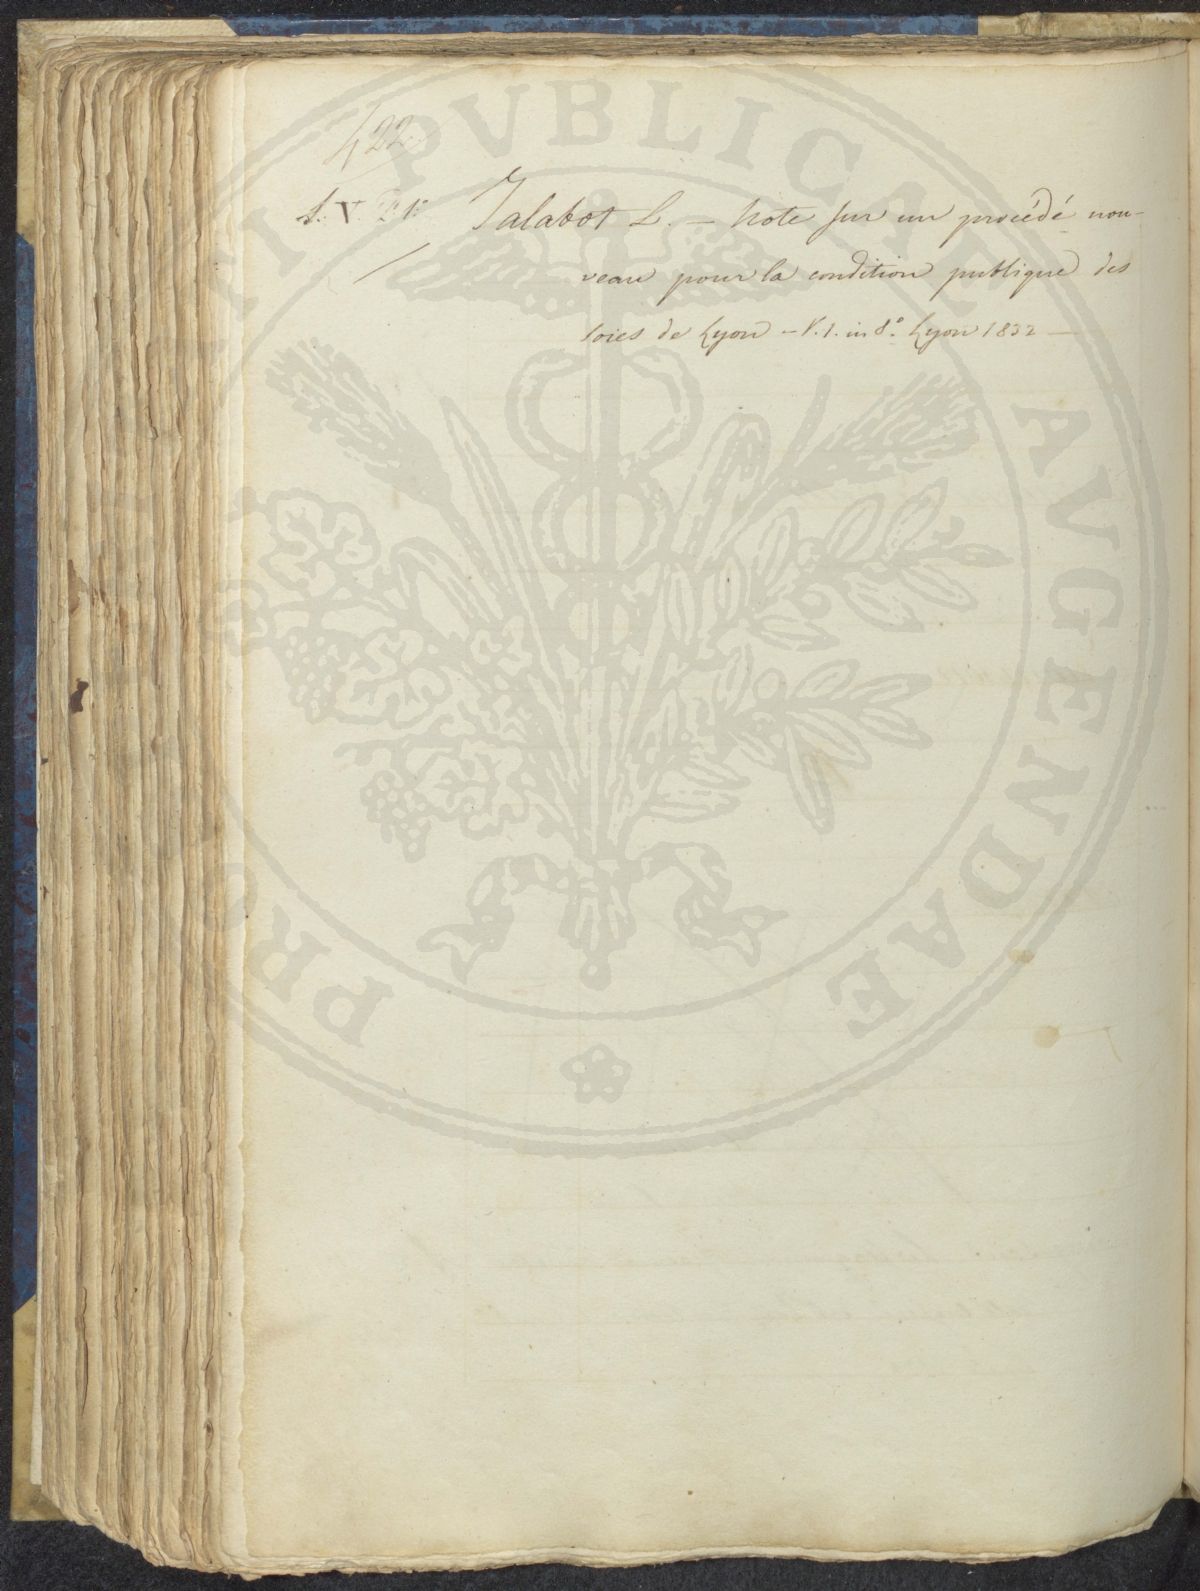 422
1. V. 21.
Talabot L. — Note sur un procédé nou-
veau pour la condition publique des
soies de Lyon — V. 1. in 8º. Lyon 1832 —
PROSPERITATI PVBLICAE AVGENDAE